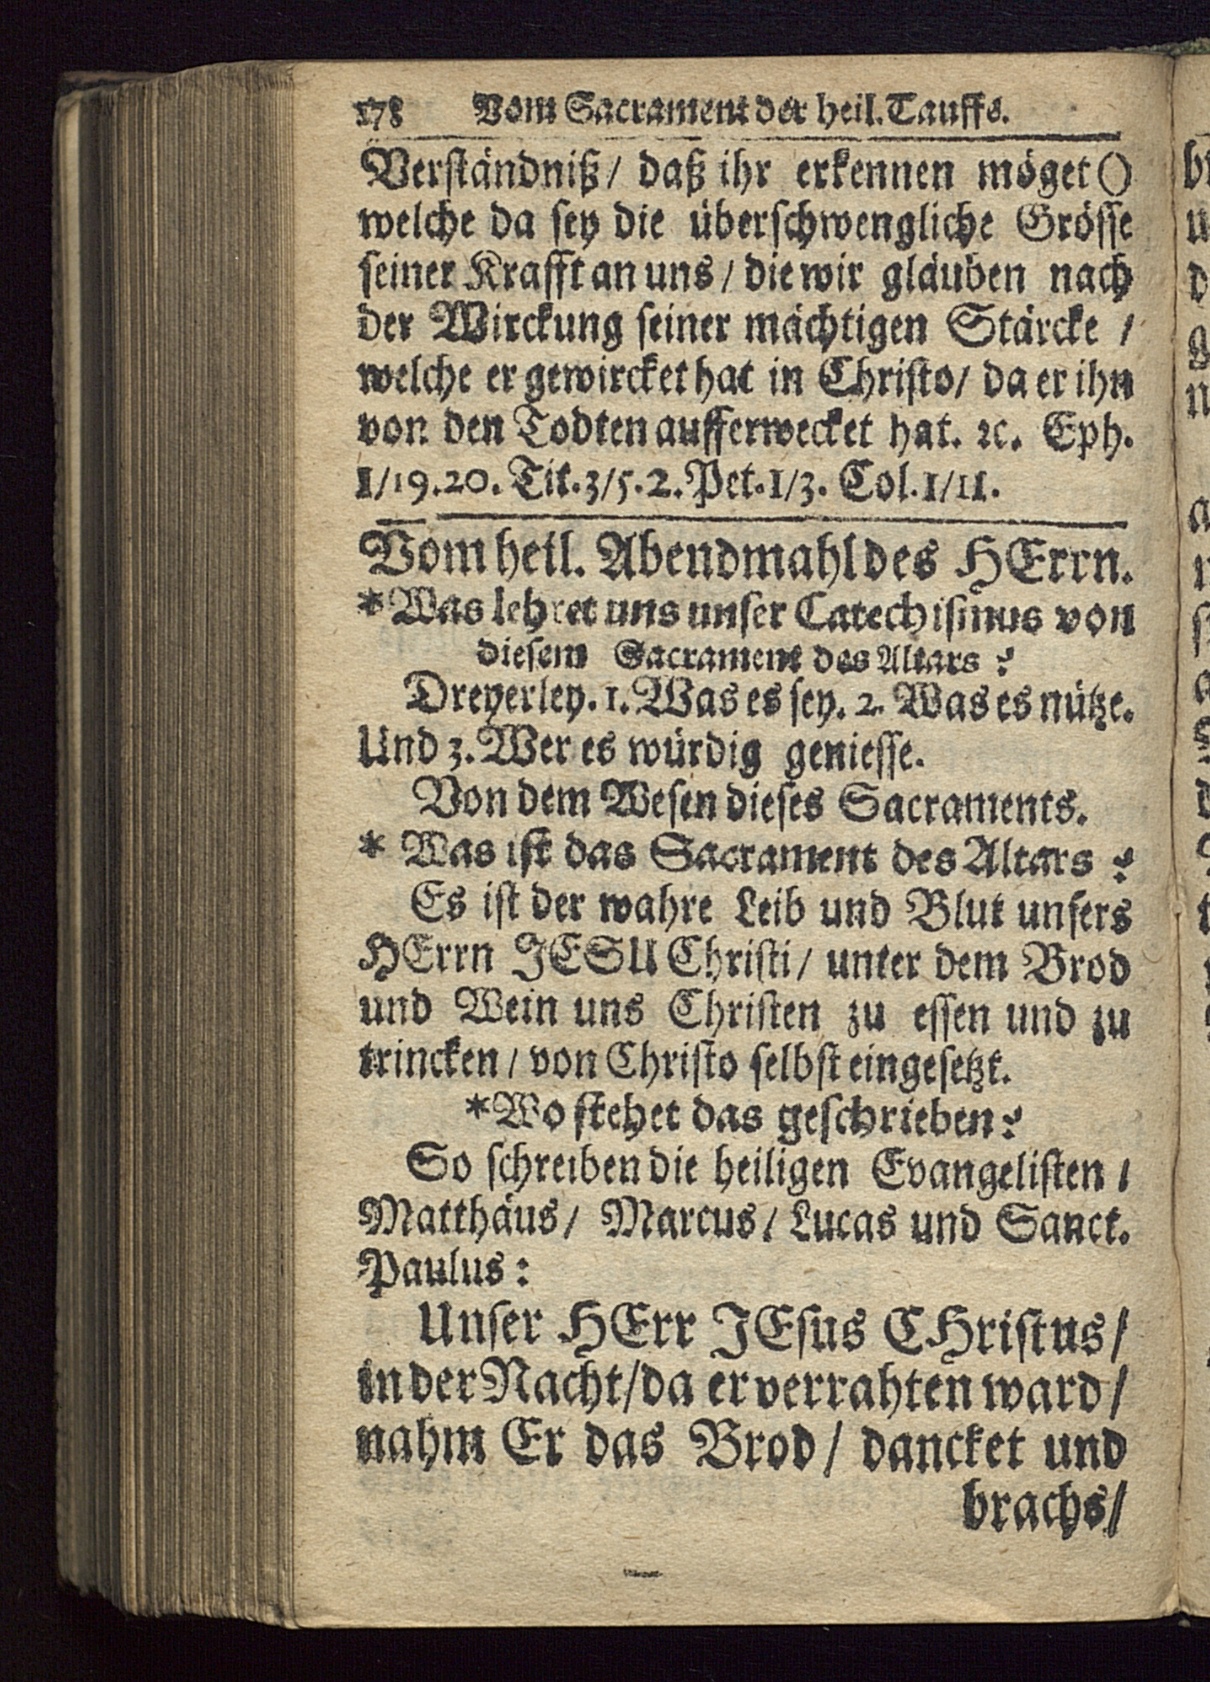 178 Vom Sacrament der heil. Tauffe.
Verständniß/ daß ihr erkennen möget ()
welche da sey die überschwengliche Grösse
seiner Krafft an uns/ die wir gläuben nach
der Wirckung seiner mächtigen Stärcke /
welche er gewircket hat in Christo/ da er ihn
von den Todten aufferwecket hat. ꝛc. Eph.
1/19.20. Tit.3/5.2.Pet.1/3. Col.1/11.
Vom heil. Abendmahl des HErrn.
*Was lehret uns unser Catechismus von
diesem Sacrament des Altars?
Dreyerley. 1. Was es sey. 2. Was es nütze.
Und 3. Wer es würdig geniesse.
Von dem Wesen dieses Sacraments.
* Was ist das Sacrament des Altars?
Es ist der wahre Leib und Blut unsers
HErrn JESU Christi/ unter dem Brod
und Wein uns Christen zu essen und zu
trincken/ von Christo selbst eingesetzt.
*Wo stehet das geschrieben?
So schreiben die heiligen Evangelisten/
Matthäus/ Marcus/ Lucas und Sanct.
Paulus:
Unser HErr JEsus CHristus/
in der Nacht/da er verrahten ward/
nahm Er das Brod/ dancket und
brachs/